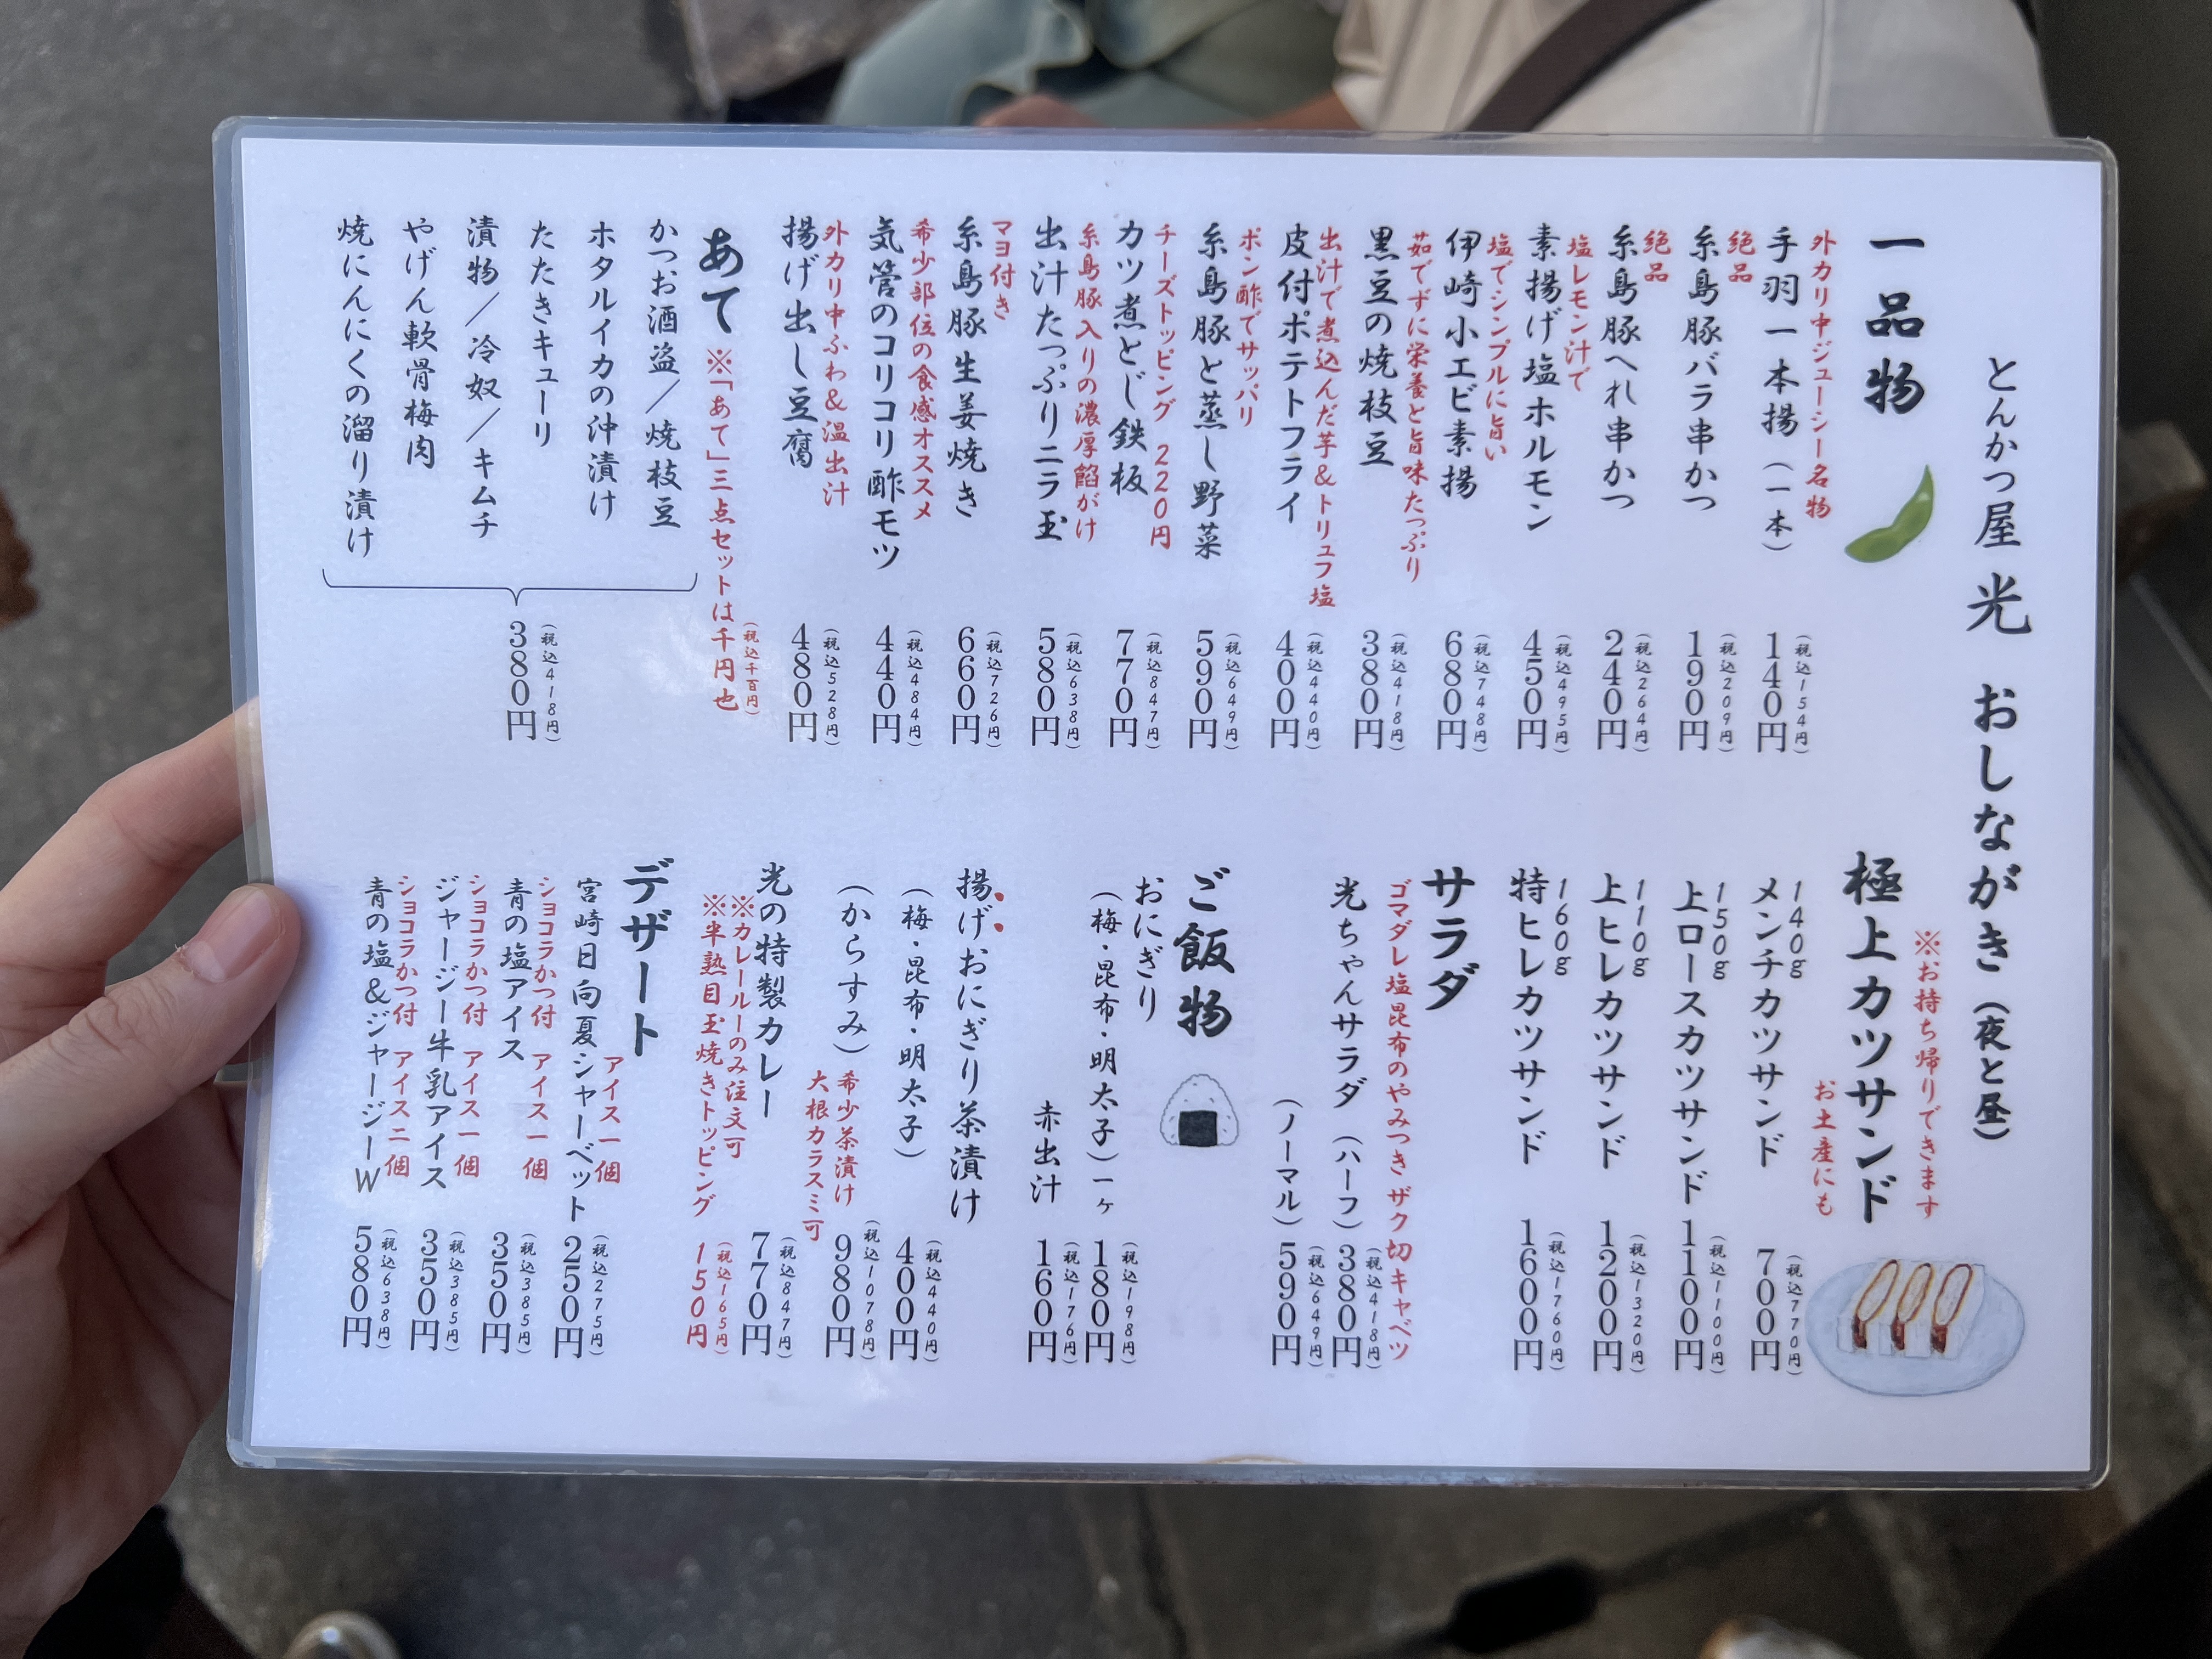 とんかつ屋 光 おしながき（夜と昼）
一品物
外カリ中ジューシー名物
手羽一本揚（一本） 140円（税込154円）
絶品
糸島豚バラ串かつ 190円（税込209円）
絶品
糸島豚へれ串かつ 240円（税込264円）
塩レモン汁で
素揚げ塩ホルモン 450円（税込495円）
塩でシンプルに旨い
伊崎小エビ素揚 680円（税込748円）
茹でずに栄養と旨味たっぷり
黒豆の焼枝豆 380円（税込418円）
出汁で煮込んだ芋＆トリュフ塩
皮付ポテトフライ 400円（税込440円）
ポン酢でサッパリ
糸島豚と蒸し野菜 590円（税込649円）
チーズトッピング 220円
カツ煮とじ鉄板 770円（税込847円）
糸島豚入りの濃厚餡がけ
出汁たっぷりニラ玉 580円（税込638円）
マヨ付き
糸島豚生姜焼き 660円（税込726円）
希少部位の食感オススメ
気管のコリコリ酢モツ 440円（税込484円）
外カリ中ふわ＆温出汁
揚げ出し豆腐 480円（税込528円）
あて ※「あて」三点セットは千円也（税込千百円）
かつお酒盗／焼枝豆
ホタルイカの沖漬け
たたきキューリ
漬物／冷奴／キムチ
やげん軟骨梅肉
焼にんにくの溜り漬け
380円（税込418円）
※お持ち帰りできます
極上カツサンド
お土産にも
140g
メンチカツサンド 700円（税込770円）
150g
上ロースカツサンド 1100円（税込1100円）
110g
上ヒレカツサンド 1200円（税込1320円）
160g
特ヒレカツサンド 1600円（税込1760円）
サラダ
ゴマダレ塩昆布のやみつきザク切キャベツ
光ちゃんサラダ（ハーフ） 380円（税込418円）
（ノーマル） 590円（税込649円）
ご飯物
おにぎり
（梅・昆布・明太子）一ヶ 180円（税込198円）
赤出汁 160円（税込176円）
揚げおにぎり茶漬け
（梅・昆布・明太子） 400円（税込440円）
（からすみ） 980円（税込1078円）
希少茶漬け
大根カラスミ可
光の特製カレー 770円（税込847円）
※カレールーのみ注文可
※半熟目玉焼きトッピング 150円（税込165円）
デザート
アイス一個
宮崎日向夏シャーベット 250円（税込275円）
ショコラかつ付 アイス一個
青の塩アイス 350円（税込385円）
ショコラかつ付 アイス一個
ジャージー牛乳アイス 350円（税込385円）
ショコラかつ付 アイス二個
青の塩＆ジャージーW 580円（税込638円）